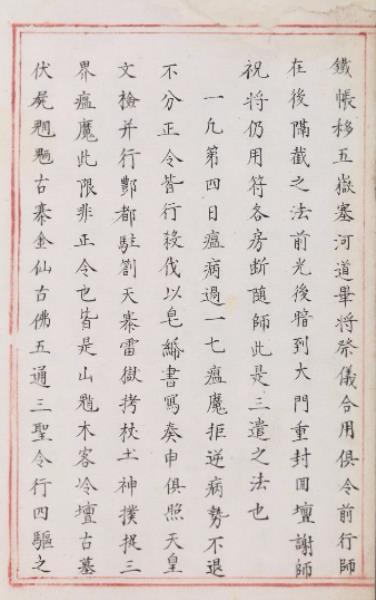 鐵帳移五嶽塞河道畢將祭儀合用俱令前行師
在後隔截之法前光後暗到大門重封回壇謝師
祝將仍用符各房断随師此是三遣之法也
一凡第四日瘟病過一七瘟魔拒逆病勢不退
不分正令皆行殺伐以皂紙書寫奏申俱照天皇
文檢并行酆都駐劄天蓬雷獄拷杖土神撲捉三
界瘟魔此限非正令也皆是山魈木客冷壇古墓
伏屍魍魎古寨金仙古佛五通三聖令行四驅之